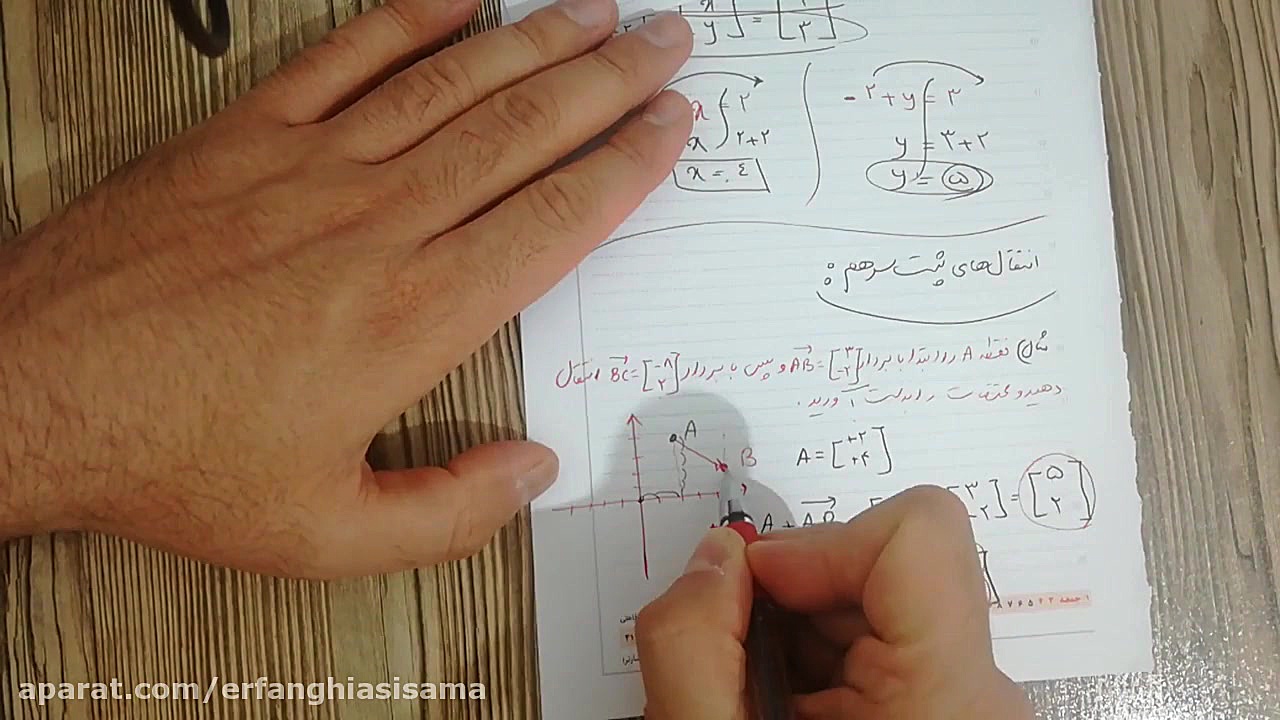 y = ۳
x = ۲
- ۲ + y = ۳
x ۲+۲
y = ۳+۲
x = ٤
y = ۵
انتقال‌های پشت سرهم :
مثال) نقطه A را ابتدا با بردار AB = [۳ -۲] و سپس با بردار BC = [-۸ ۲] انتقال
دهید و مختصات را بدست آورید.
A
B
A = [+۲ +۴]
A + AB [۳ -۲] = [۵ ۲]
aparat.com/erfanghiasisama